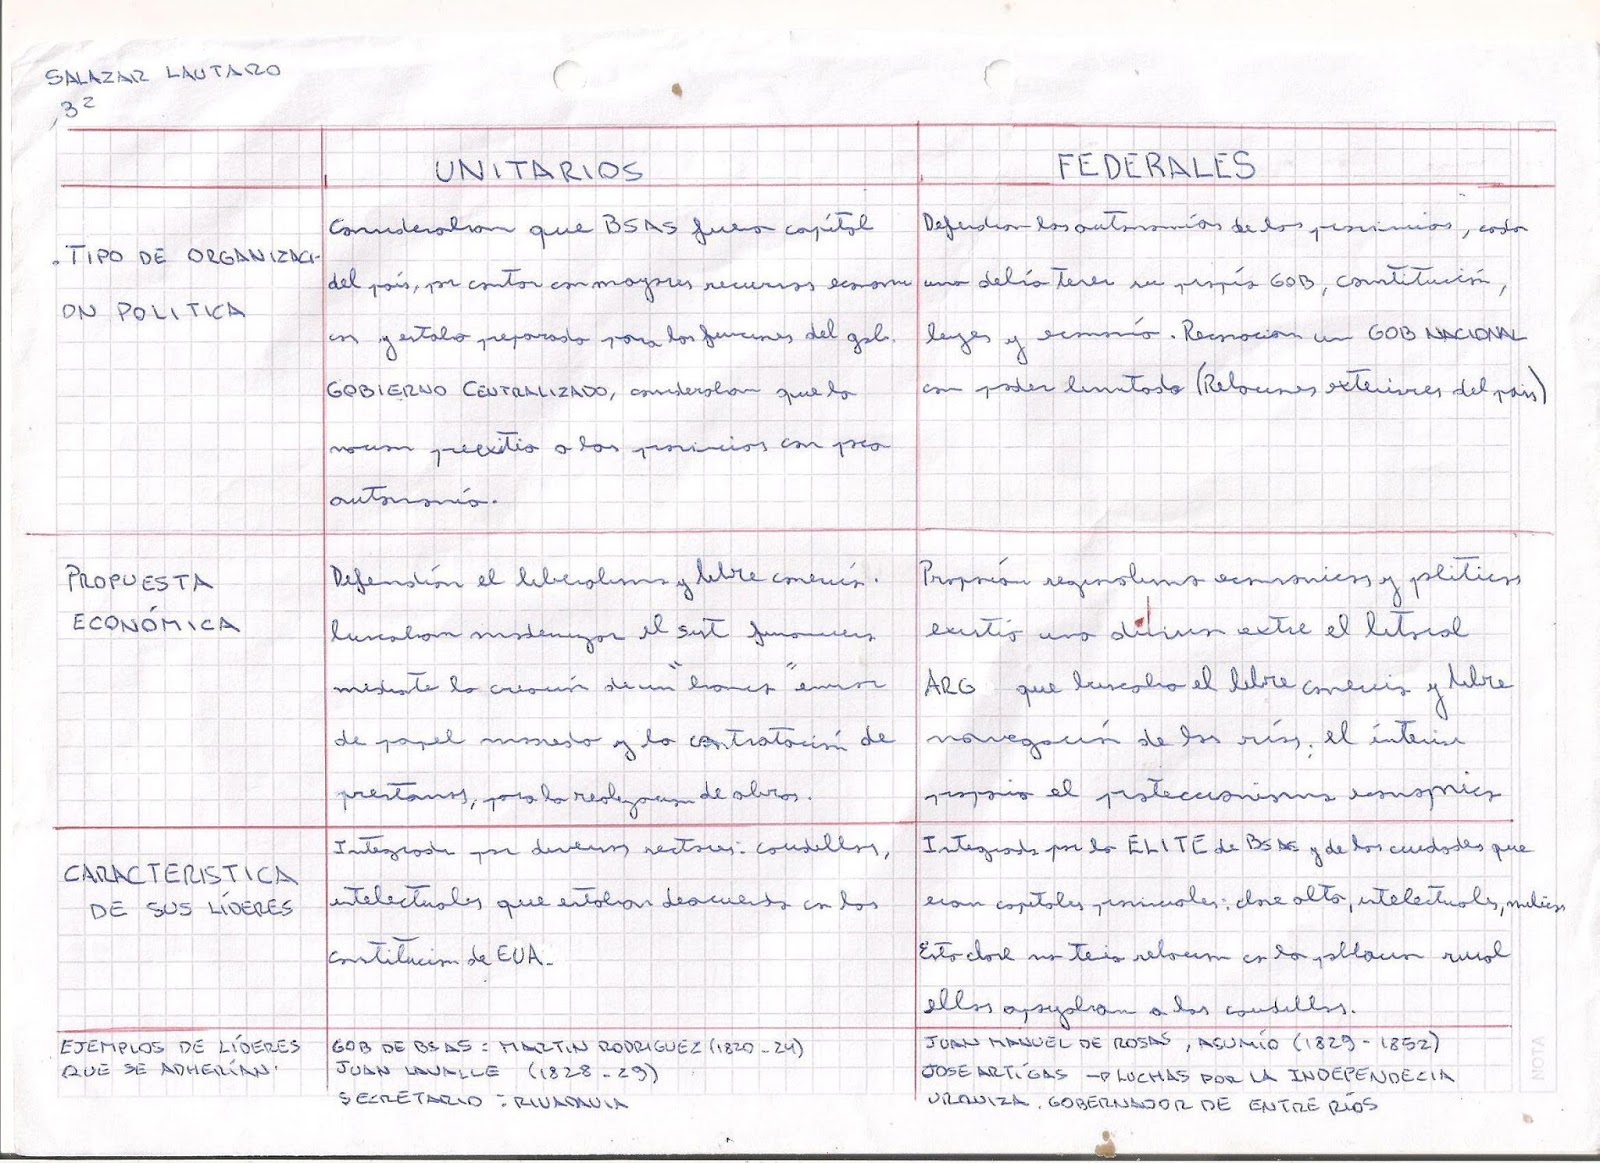 SALAZAR LAUTARO
3º
UNITARIOS
FEDERALES
. TIPO DE ORGANIZACI-
ON POLITICA
Consideraban que BSAS fuera capitol
del país, por contar con mayores recursos economi
cos y estaba preparado para las funciones del gob.
GOBIERNO CENTRALIZADO, consideraban que la
nacion preexitia a las provincias con poca
autonomía.
Defendian las autonomías de las provincias, cada
una debía tener su propio GOB, constitución,
leyes y economía. Reconocian un GOB NACIONAL
con poder limitado (Relaciones exteriores del pais)
PROPUESTA
ECONÓMICA
Defendían el liberalismo y libre comercio.
buscaban modernizar el sist financiero
mediante la creación de un "banco" emisor
de papel moneda y la contratación de
prestamos, para la realizacion de obras.
Proponían regionalismo economicos y politicos
existió una division extre el litoral
ARG que buscaba el libre comercio y libre
navegación de los ríos, el interior
proponia el proteccionismo economico
CARACTERISTICA
DE SUS LÍDERES
Integrada por diversos sectores: caudillos,
intelectuales que estaban deacuerdo con los
constitucion de EUA.
Integrada por la ELITE de BSAS y de las ciudades que
eran capitales provinciales: clase alta, intelectuales, milicos
Esta clase no tenia relacion con la poblacion rural
ellos apoyaban a los caudillos.
EJEMPLOS DE LÍDERES
QUE SE ADHERÍAN.
GOB DE BSAS: MARTIN RODRIGUEZ (1820-24)
JUAN LAVALLE (1828-29)
SECRETARIO: RIVADAVIA
JUAN MANUEL DE ROSAS, ASUMÍO (1829-1852)
JOSE ARTÍGAS → LUCHAS POR LA INDEPENDECIA
URQUIZA. GOBERNADOR DE ENTRE RÍOS
NOTA